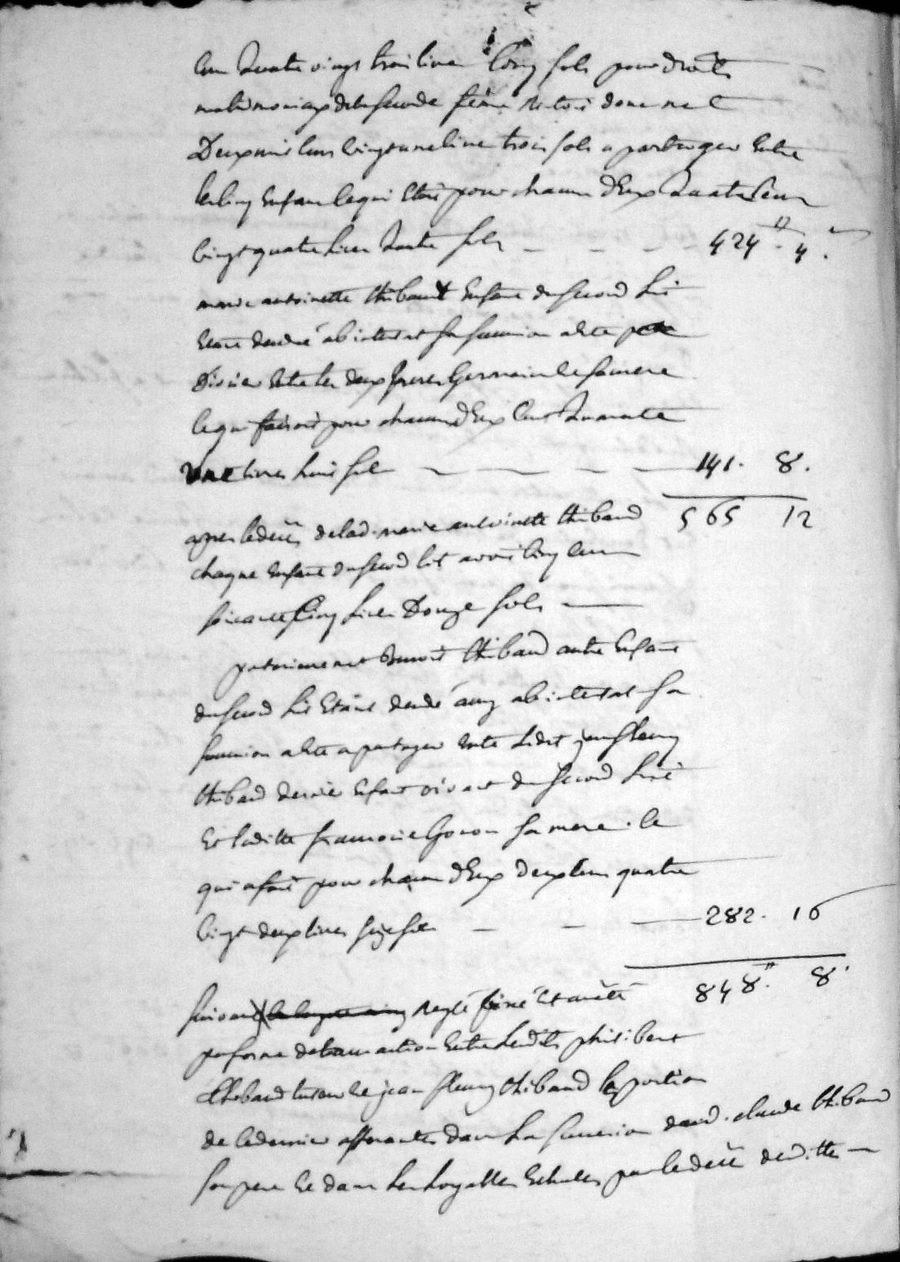 Cent Quatre vingt trois livres Cinq sols pour droits
matrimoniaux de la seconde femme
Deux mil Cent vingt une livre trois sols a partager Entre
les Cinq Enfans ce qui Etoit pour chacun d'Eux Quatre Cent
vingt quatre livres Quatre sols 424 # 4.
marie antoinette thibaud Enfant du second lit
Etant decedé abintestat sa succession a été
divisée Entre les deux freres Germains et sa mere
ce qui faisoit pour chacun d'Eux Cent Quarante
une livres huit sols 141. 8.
565 12
apres le deces de lad. marie antoinette thibaud
chaque Enfant du second lit avoit Cinq Cent
soixante Cinq livres Douze sols
posterieurement Benoit thibaud autre Enfant
du second lit Etant decedé aussy abintestat sa
succession a été a partager Entre Ledit jean fleury
thibaud dernier Enfant vivant du second lit
Et laditte francoise Goron sa mere. ce
qui a fait pour chacun d'Eux deux Cent quatre
vingt deux livres seize sols 282. 16
848 # 8.
suivant Reglé fixé Et arrêté
par forme de transaction Entre lesdits philibert
thibaud tuteur de jean fleury thibaud la portion
de ce dernier afferante dans La succession dud. claude thibaud
son pere Et dans les hoyries Echutes par le deces desdittes